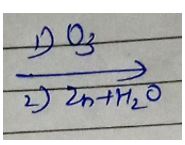 1) O₃
2) Zn+H₂O